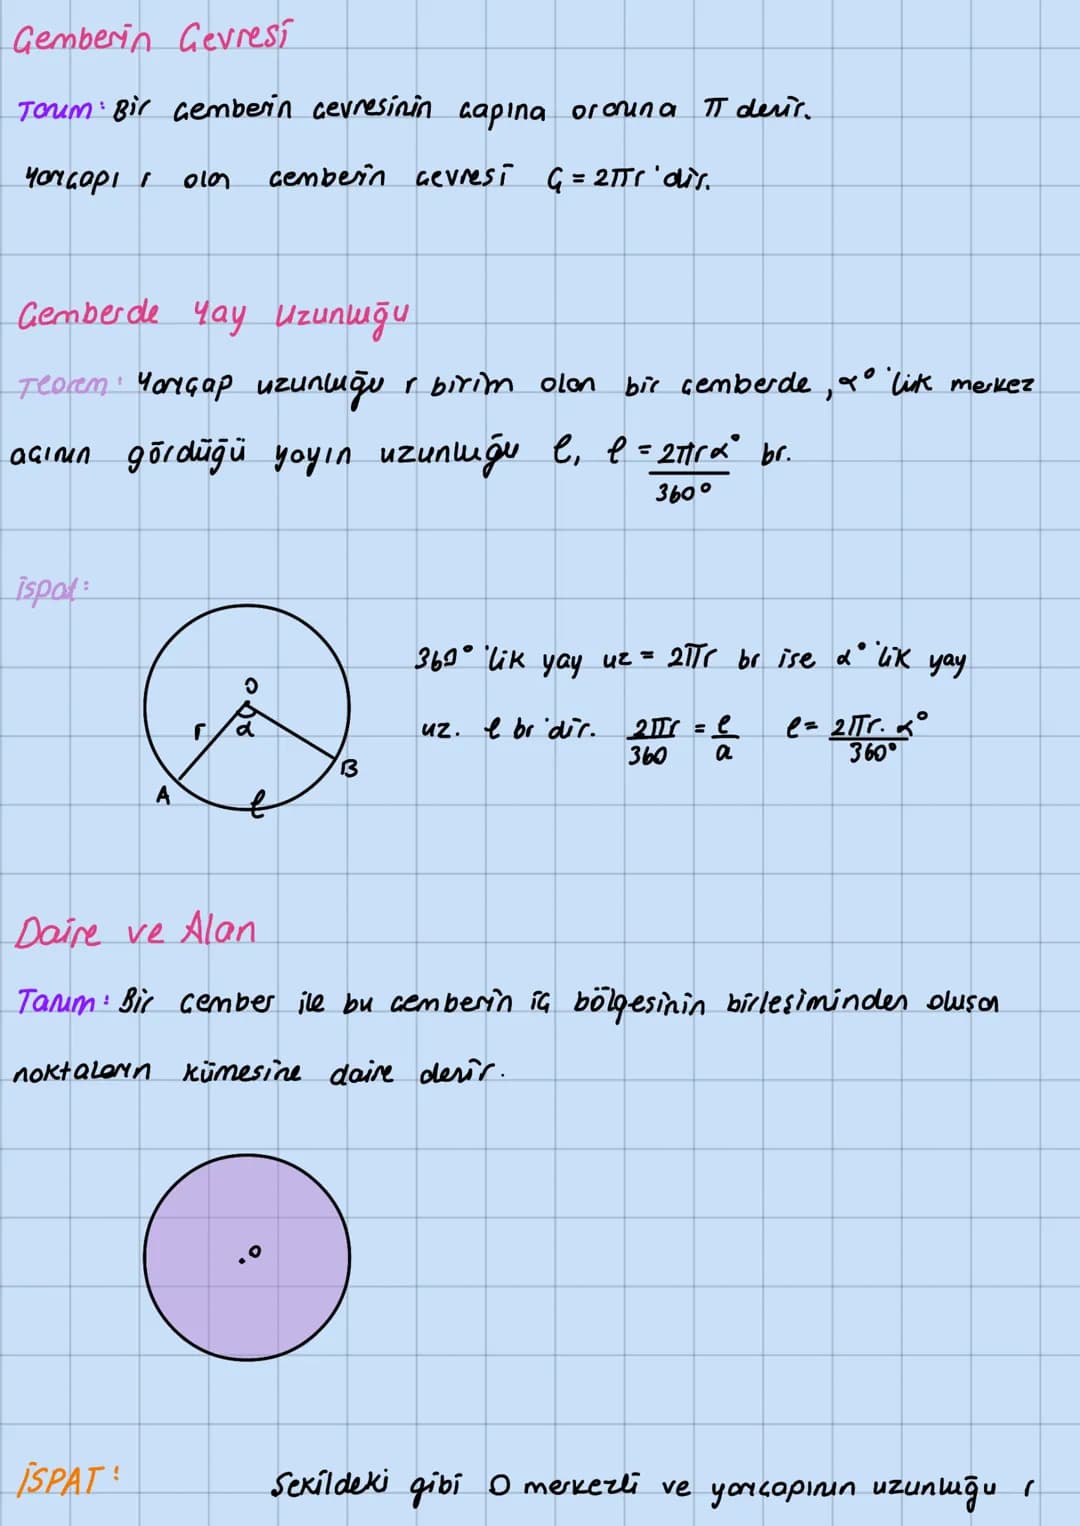 Çemberin Çevresi
Tanım: Bir çemberin çevresinin çapına oranına π denir.
Yarıçapı r olan çemberin çevresi Ç = 2πr 'dir.
Çemberde Yay Uzunluğu
Teorem: Yarıçap uzunluğu r birim olan bir çemberde, α° 'lik merkez
açının gördüğü yayın uzunluğu ℓ, ℓ = 2πrα°/360° br.
ispat:
360° 'lik yay uz = 2πr br ise α° 'lik yay
uz. ℓ br 'dir. 2πr/360 = ℓ/a ℓ = 2πr.α°/360°
O
r α
B
A
ℓ
Daire ve Alan
Tanım: Bir çember ile bu çemberin iç bölgesinin birleşiminden oluşan
noktaların kümesine daire denir.
.O
İSPAT: Şekildeki gibi O merkezli ve yarıçapının uzunluğu r